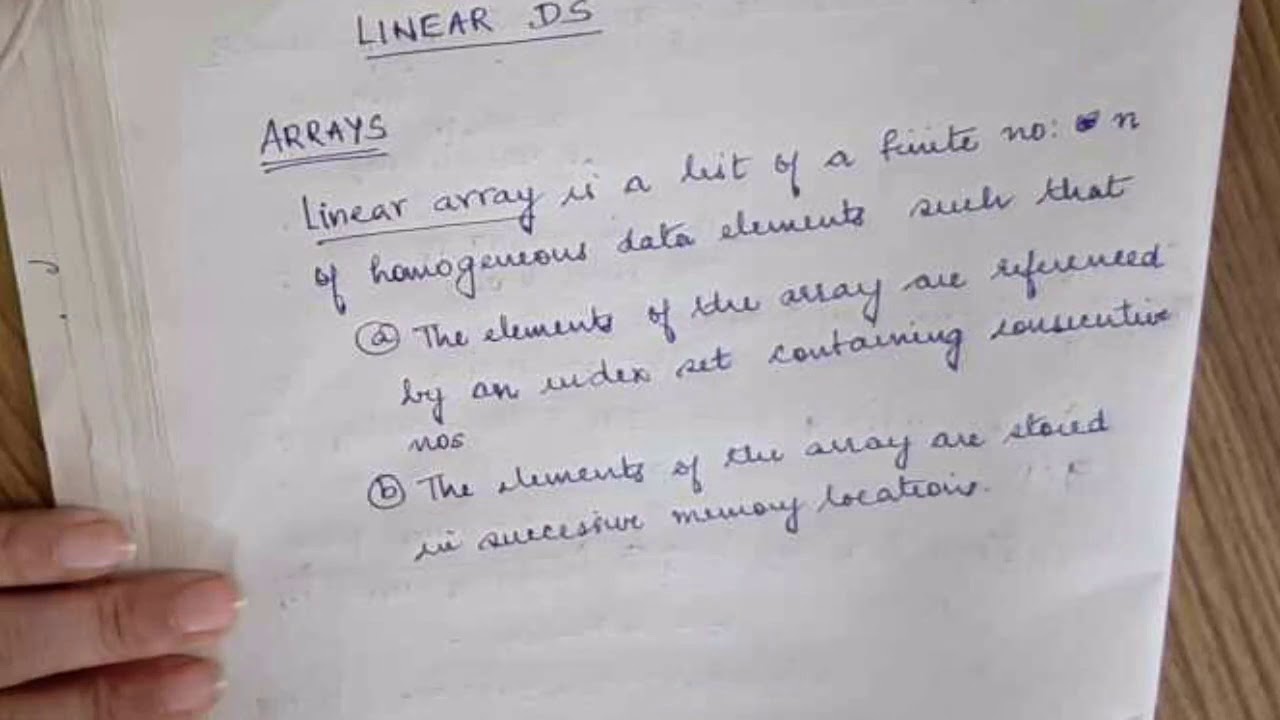 LINEAR DS
ARRAYS
Linear array is a list of a finite no: n
of homogeneous data elements such that
(a) The elements of the array are referenced
by an index set containing consecutive
nos
(b) The elements of the array are stored
in successive memory locations.